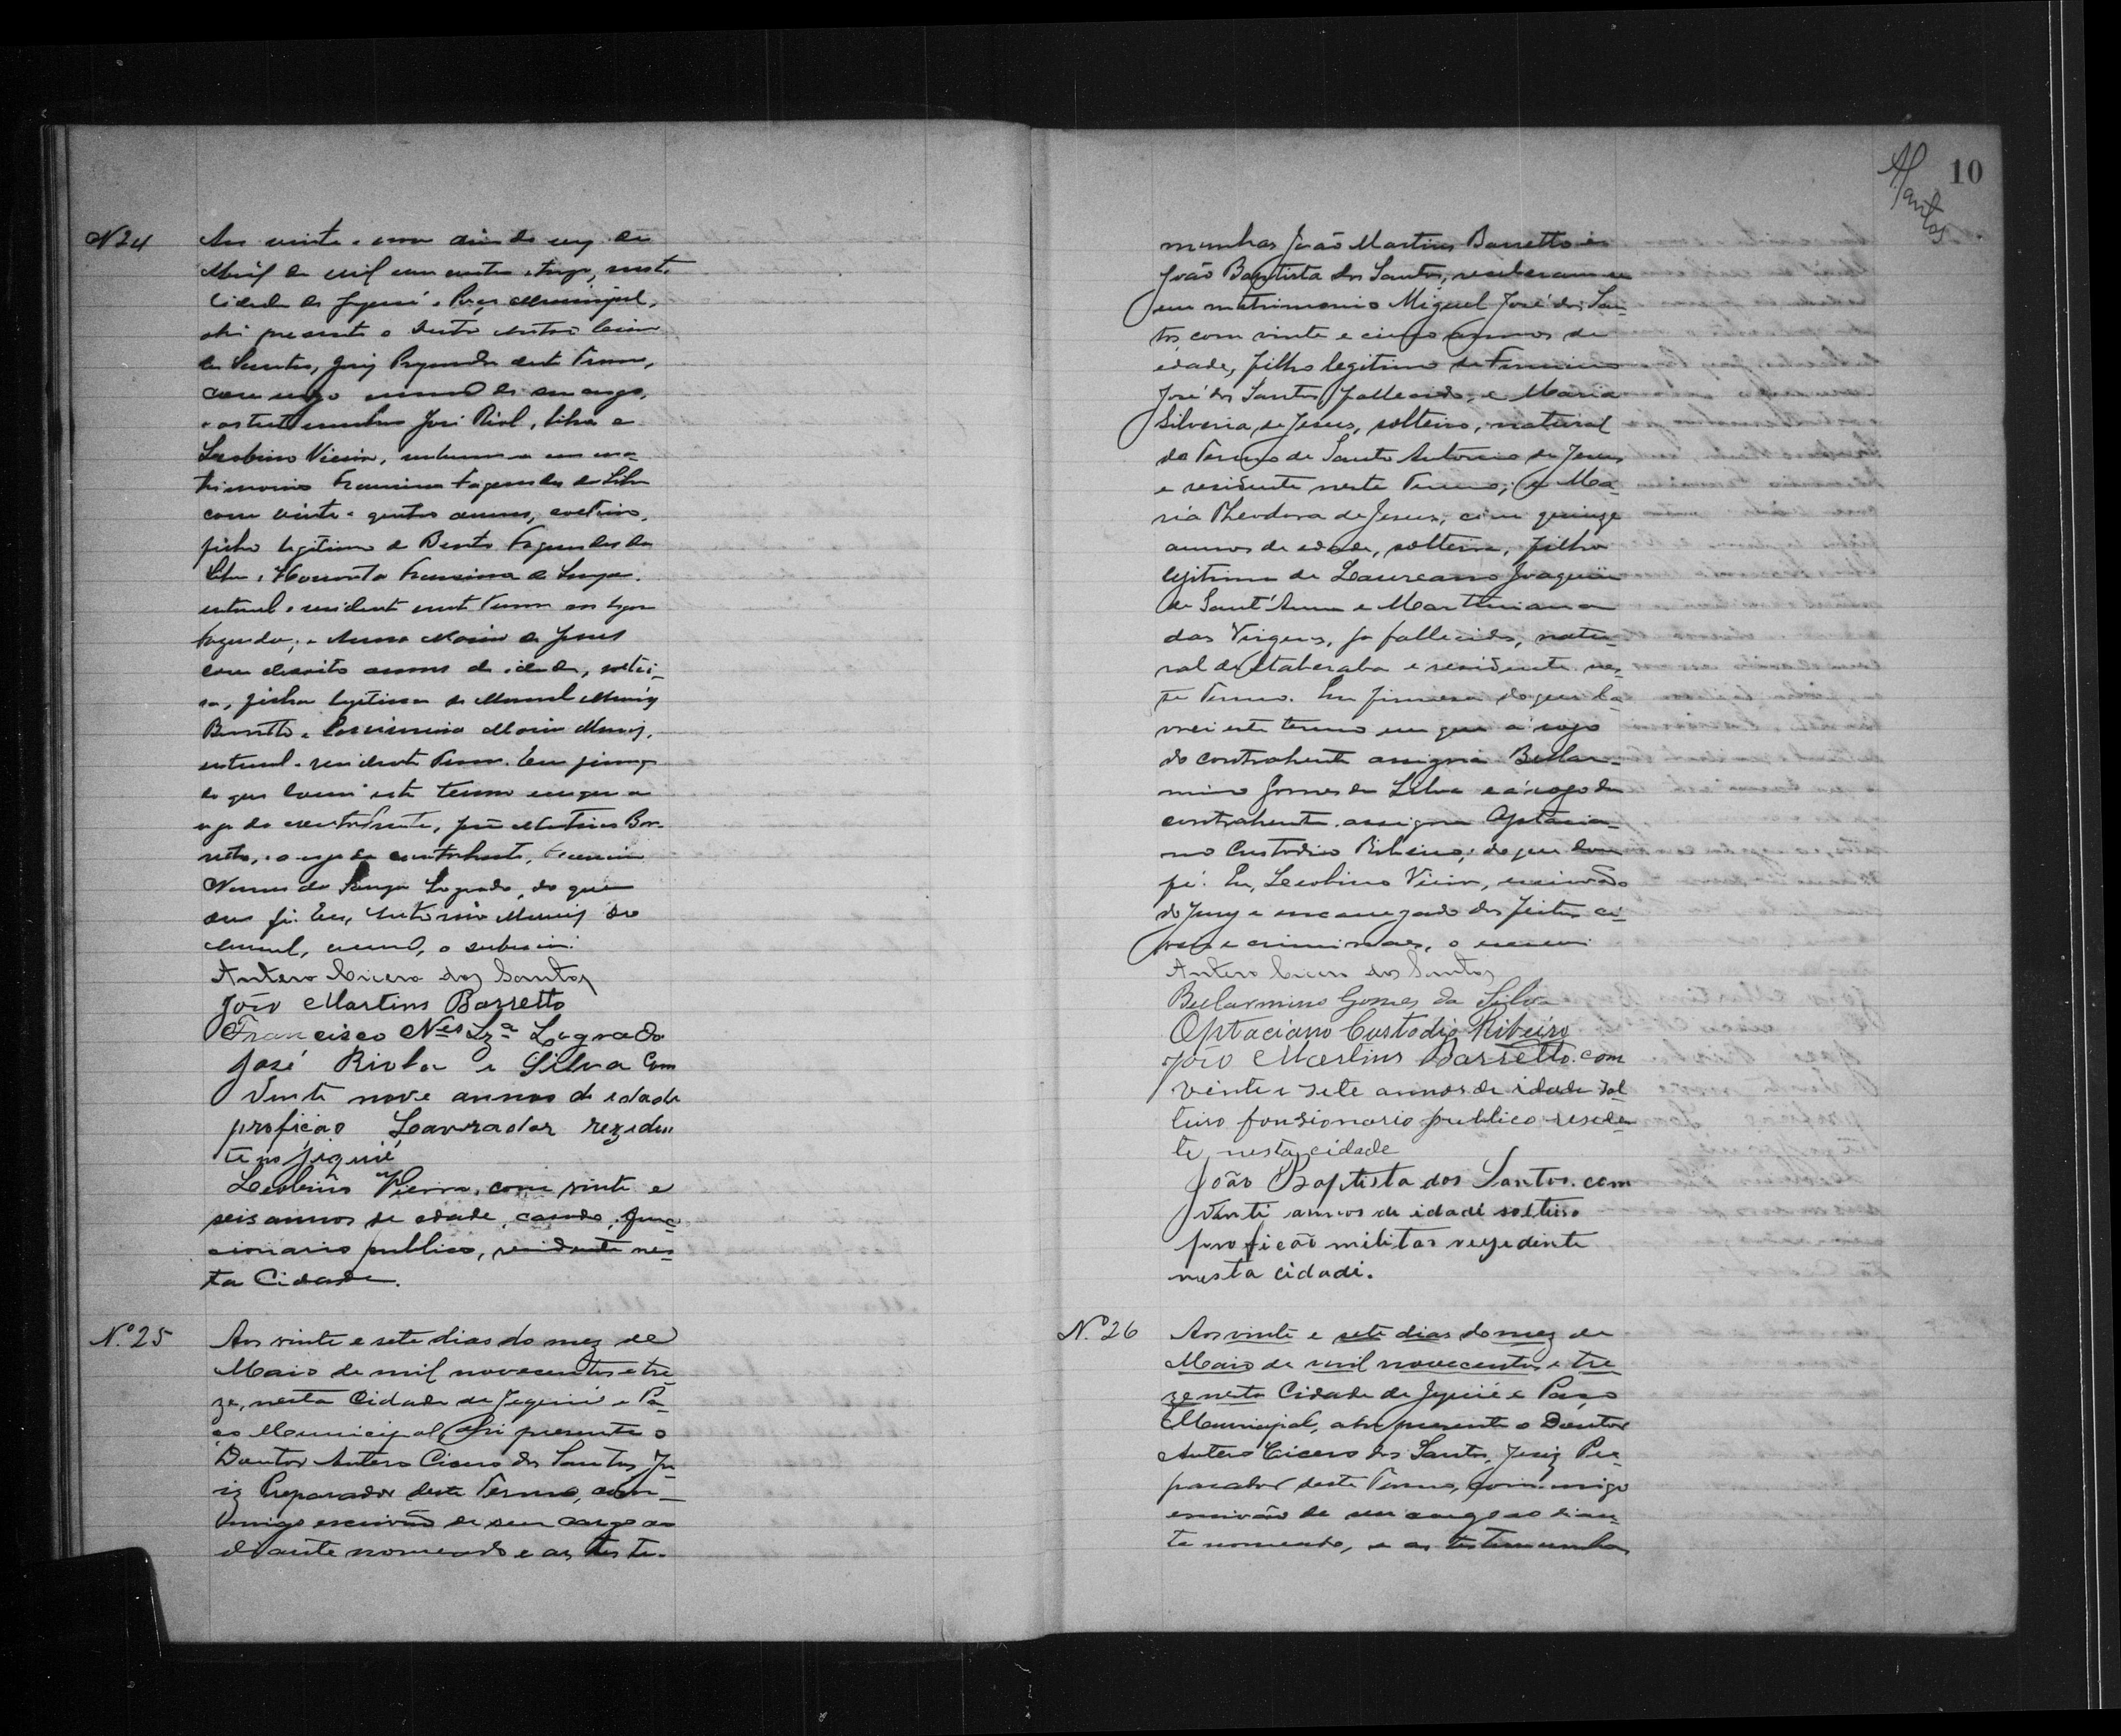 Nº 24
Aos vinte e um dias do mez de
Abril de mil novecentos e treze, nesta
Cidade de Jequié e Paço Municipal,
ahi presente o Doutor Antero Cicero
dos Santos, Juiz Preparador deste Termo,
commigo escrivão de seu cargo,
e as testemunhas José Silva e
Leobino Vieira, receberam-se em ma-
trimonio Fagundes da Silva
com vinte e quatro annos, solteiro,
filho legitimo de Bento Fagundes da
Silva e Francisca de Souza,
natural e residente neste Termo no logar
Fazenda; e Anna Maria de Jesus
com dezoito annos de idade, soltei-
ra, filha legitima de Manoel Muniz
Barretto e Maria Muniz,
natural e residente Termo. Em firmeza
do que lavrei este termo em que a
rogo do contrahente, João Martins Bar-
retto, e a rogo da contrahente, Francisco
Nunes de Souza Logrado, do que
dou fé. Eu, Antonio Muniz do
escrivão, o subscrevi.
Antero Cicero dos Santos
João Martins Barretto
Francisco Nes Sza Logrado
José Riola e Silva com
Vinte nove annos de idade
proficão Lavrador reziden
te no Jiquié
Leobino Vieira, com vinte e
seis annos de edade, casado, func-
cionario publico, residente nes-
ta Cidade.
N.º 25
Aos vinte e sete dias do mez de
Maio de mil novecentos e tre-
ze, nesta Cidade de Jequié e Pa-
ço Municipal, ahi presente o
Doutor Antero Cicero dos Santos, Ju-
iz Preparador deste Termo, com-
migo escrivão de seu cargo ao
diante nomeado e as teste-
10
ASantos
munhas João Martins Barretto e
João Baptista dos Santos, receberam-se
em matrimonio Miguel José dos San-
tos, com vinte e cinco annos de
idade, filho legitimo de Firmino
José dos Santos, fallecido, e Maria
Silveria de Jesus, solteiro, natural
do Termo de Santo Antonio de Jesus
e residente neste Termo; e Ma-
ria Theodora de Jesus, com quinze
annos de edade, solteira, filha
legitima de Laureano Joaquim
de Sant'Anna e Marthiniana
das Virgens, ja fallecida, natu-
ral de Itaberaba e residente nes-
te Termo. Em firmeza do que la-
vrei este termo em que á rogo
do contrahente assigna Bellar-
mino Gomes da Silva e á rogo da
contrahente assigna Optacia-
no Custodio Ribeiro; do que dou
fé. Eu, Leobino Vieira, escrivão
do Jury e encarregado dos feitos ci-
veis e criminaes, o escrevi.
Antero Cicero dos Santos
Bellarmino Gomes da Silva
Optaciano Custodio Ribeiro
João Martins Barretto. com
vinte e sete annos de idade sol
teiro fonsionario publico reside
te nesta cidade
João Baptista dos Santos. com
Vinti annos de idade solteiro
proficão militar rezedinte
nesta cidadi.
N.º 26
Aos vinte e sete dias do mez de
Maio de mil novecentos e tre
ze nesta Cidade de Jequié e Paço
Municipal, ahi presente o Doutor
Antero Cicero dos Santos, Juiz Pre-
parador deste Termo, commigo
escrivão de seu cargo ao dian-
te nomeado, e as testemunhas